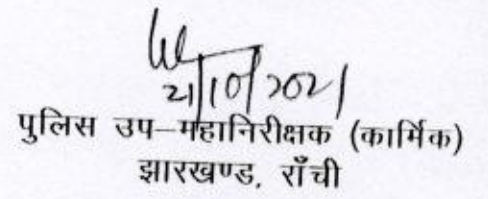 21/10/2021
पुलिस उप–महानिरीक्षक (कार्मिक)
झारखण्ड, राँची